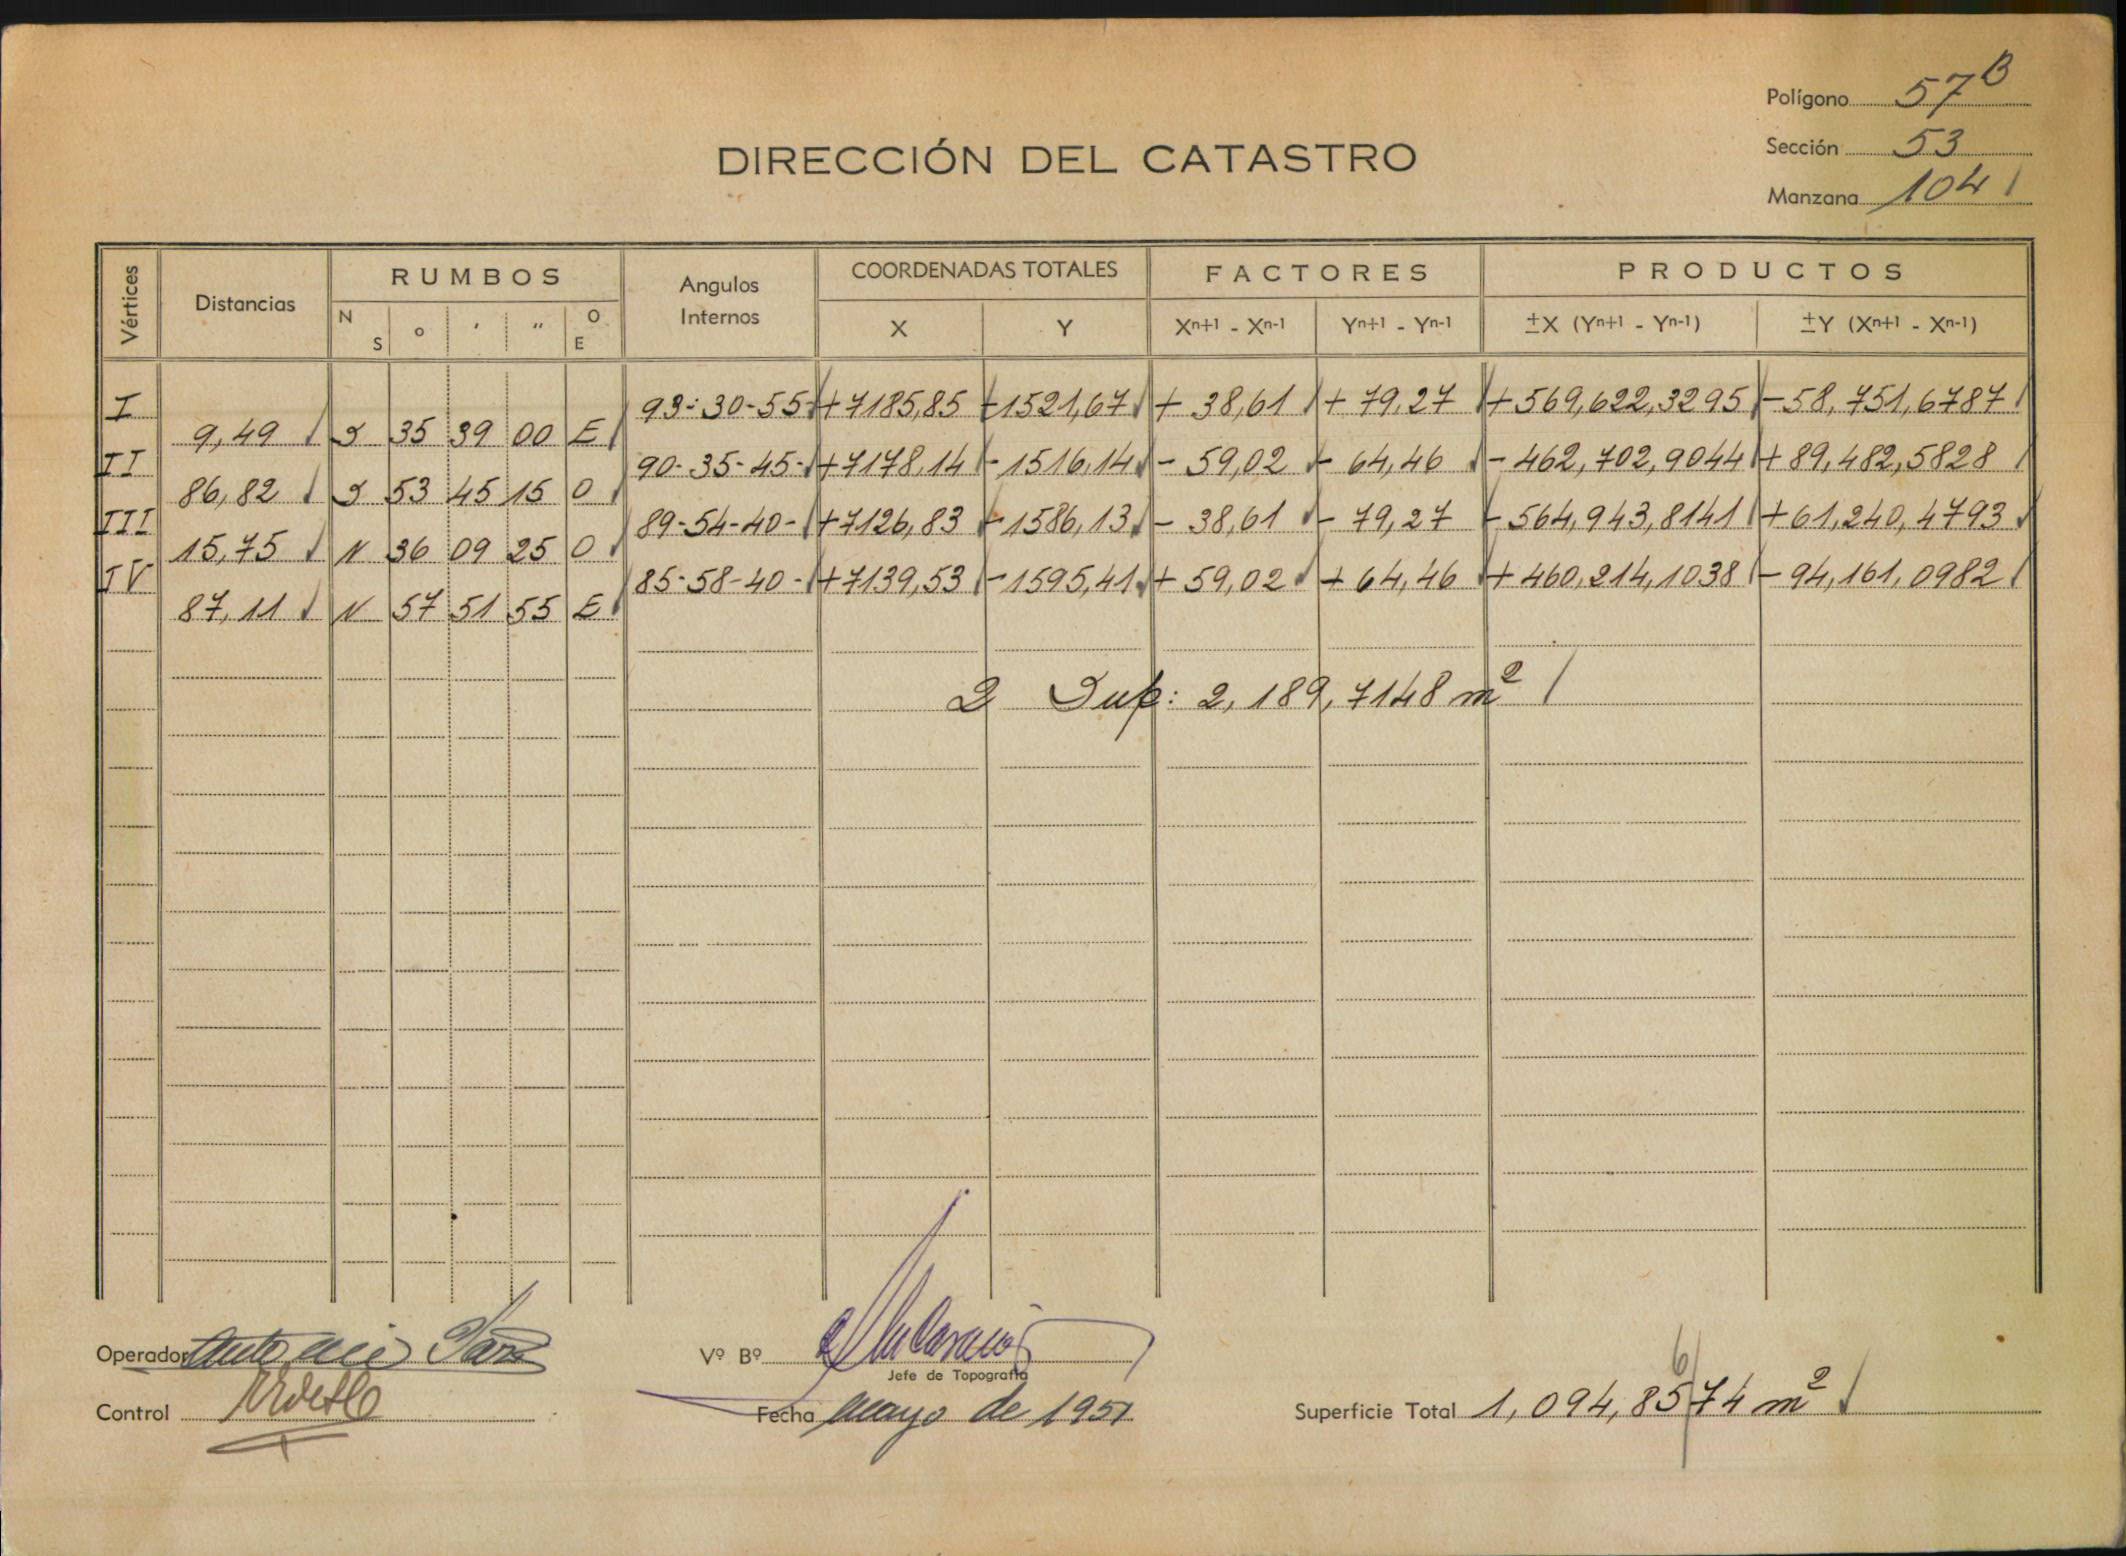 Polígono 57 B
Sección 53
Manzana 104
DIRECCIÓN DEL CATASTRO
Vértices Distancias RUMBOS Angulos Internos COORDENADAS TOTALES FACTORES PRODUCTOS
N S o ' " O E X Y Xn+1 - Xn-1 Yn+1 - Yn-1 ±X (Yn+1 - Yn-1) ±Y (Xn+1 - Xn-1)
I 93-30-55 +7185,85 -1521,67 + 38,61 + 79,27 +569,622,3295 -58,751,6787
9,49 S 35 39 00 E
II 90-35-45- +7178,14 -1516,14 - 59,02 - 64,46 -462,702,9044 +89,482,5828
86,82 S 53 45 15 O
III 89-54-40- +7126,83 -1586,13 - 38,61 - 79,27 -564,943,8141 +61,240,4793
15,75 N 36 09 25 O
IV 85-58-40- +7139,53 -1595,41 + 59,02 + 64,46 +460,214,1038 -94,161,0982
87,11 N 57 51 55 E
2 Sup: 2,189,7148 m²
Operador Antonio
Vº Bº
Jefe de Topografía
Control
Fecha mayo de 1951
6
Superficie Total 1,094,8574 m²